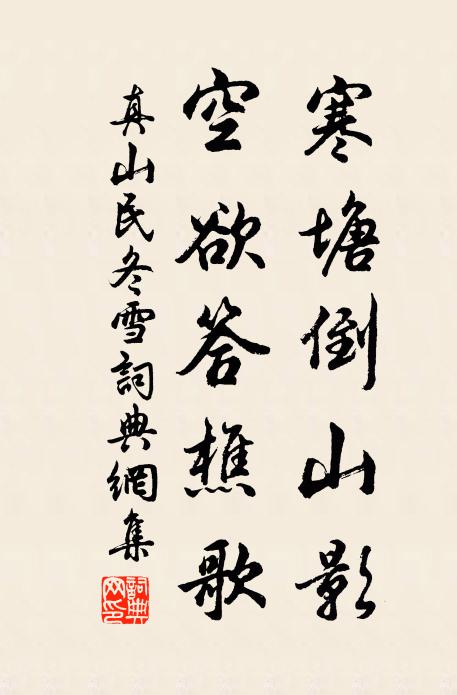 寒塘倒山影
空欲答樵歌
真山民冬雪詞典網集
詞典網印